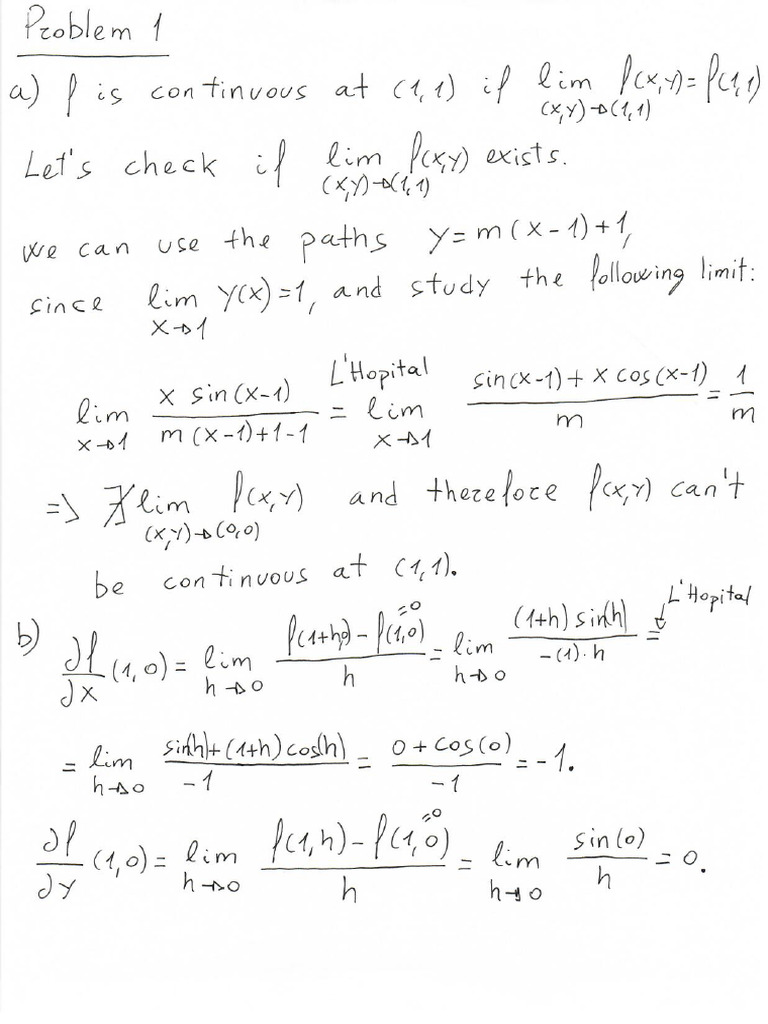 Problem 1
a) f is continuous at (1,1) if lim f(x,y)=f(1,1)
(x,y)→(1,1)
Let's check if lim f(x,y) exists.
(x,y)→(1,1)
we can use the paths y=m(x-1)+1,
since lim y(x)=1, and study the following limit:
x→1
lim x sin(x-1) / m(x-1)+1-1 = L'Hopital lim sin(x-1)+x cos(x-1) / m = 1/m
x→1 x→1
=> ∄ lim f(x,y) and therefore f(x,y) can't
(x,y)→(0,0)
be continuous at (1,1).
b) ∂f/∂x (1,0) = lim f(1+h,0)-f(1,0) =0 / h = lim (1+h) sin(h) / -(1)·h = L'Hopital
h→0 h→0
= lim sin(h)+(1+h)cos(h) / -1 = 0+cos(0) / -1 = -1.
h→0
∂f/∂y (1,0) = lim f(1,h)-f(1,0) =0 / h = lim sin(0) / h = 0.
h→0 h→0